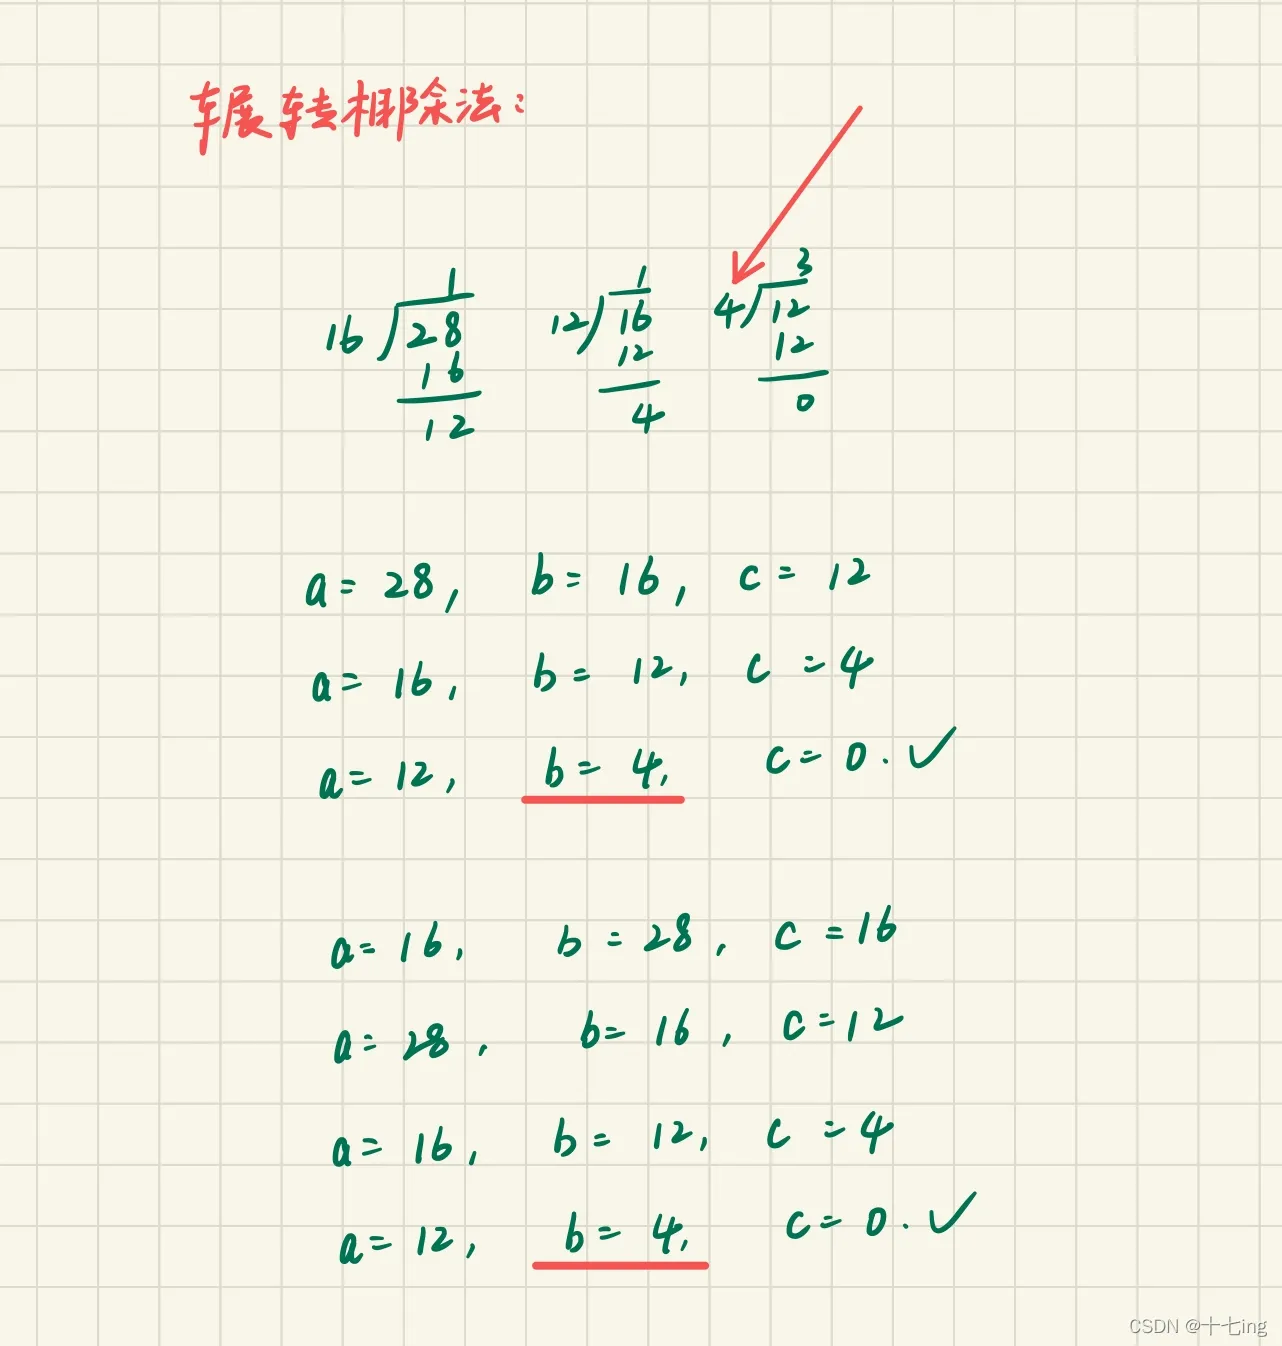 辗转相除法：
1 1 3
16 28 12 16 4 12
16 12 12
12 4 0
a = 28, b = 16, c = 12
a = 16, b = 12, c = 4
a = 12, b = 4, c = 0. ✓
a = 16, b = 28, c = 16
a = 28, b = 16, c = 12
a = 16, b = 12, c = 4
a = 12, b = 4, c = 0. ✓
CSDN @十七ing